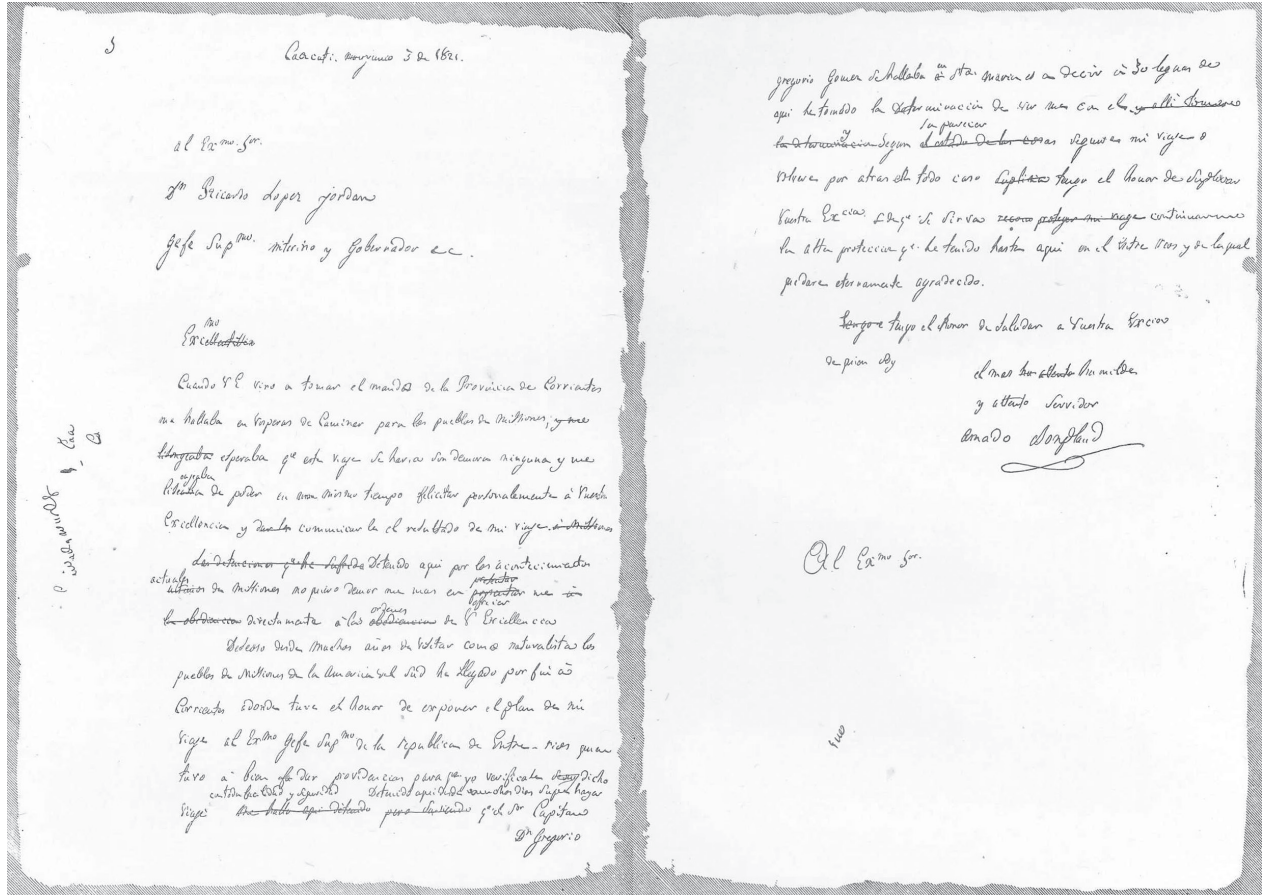 Caacati. 3 de 1821.
al Exmo. Sor.
Dn Ricardo Lopez jordan
Gefe Supmo. interino y Gobernador ec.
mo
Excellentissi
Cuando V E vino a tomar el mando de la Provincia de Corrientes
me hallaba en vesperas de Caminar para los pueblos de Missiones, y me
litongeaba esperaba qe este viaje se haria sin demora ninguna y me
de poder en mismo tiempo felicitar personalemente à Vuestra
Excellencia y comunicar la el resultado de mi viaje a Missiones
Las detenciones qe he sufrido Detenido aqui por los acontecimientos
actuales
de Missiones no quiero demorar me mas en presentar me à
ordenes
la obediencia directamente à las obediencia de V Excellencia
Deseoso desde muchos años de visitar como naturalista los
pueblos de Missiones de la America del Sud he llegado por fin à
Corrientes adonde tuve el honor de exponer el plan de mi
viaje al Exmo Gefe Supmo de la republica de Entre-rios quien
tuvo à bien de dar providencias para qe yo verificase dicho
con toda y seguridad Detenido aqui desde muchos dias
viaje me hallo aqui detenido pero sabiendo qe el Sor Capitan
Dn Gregorio
gregorio Gomez se hallaba en Sta. Maria es a decir à 30 leguas de
aqui he tomado la determinacion de con el y alli tomare
la determinacion y segun el estado de las cosas seguire mi viaje o
volvere por atras en todo caso suplico tengo el honor de suplicar
Vuestra Excia. se sirva proteger mi viage continuarme
la alta proteccion qe. he tenido hasta aqui en el Entre rios y de la qual
quedare eternamente agradecido.
tengo el honor de saludar a Vuestra Excia
de quien soy
el mas attento humilde
y attento servidor
Amado Bonpland
Al Exmo Sor.